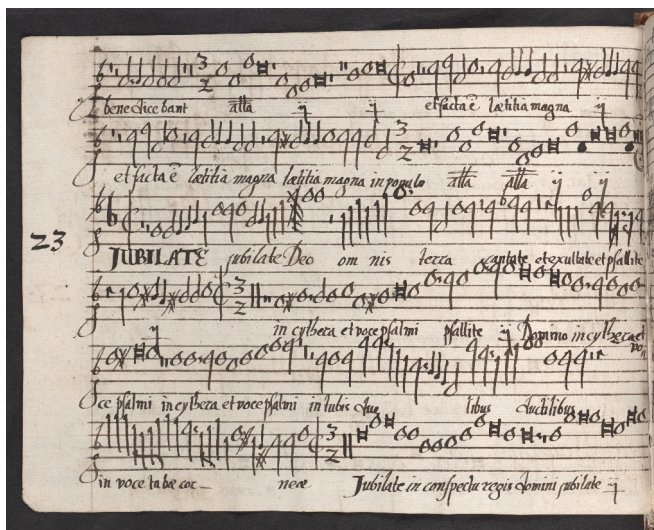 benedicebant alla ij ij et facta ē lætitia magna ij
et facta ē lætitia magna lætitia magna in populo alla alla ij ij
23
JUBILATE jubilate Deo om nis terra cantate et exultate et psallite
in cythera et voce psalmi psallite ij Domino in cythera et vo
ce psalmi in cythera et voce psalmi in tubis duc tilibus ductilibus
in voce tubæ cor- neæ Jubilate in conspectu regis Domini jubilate ij